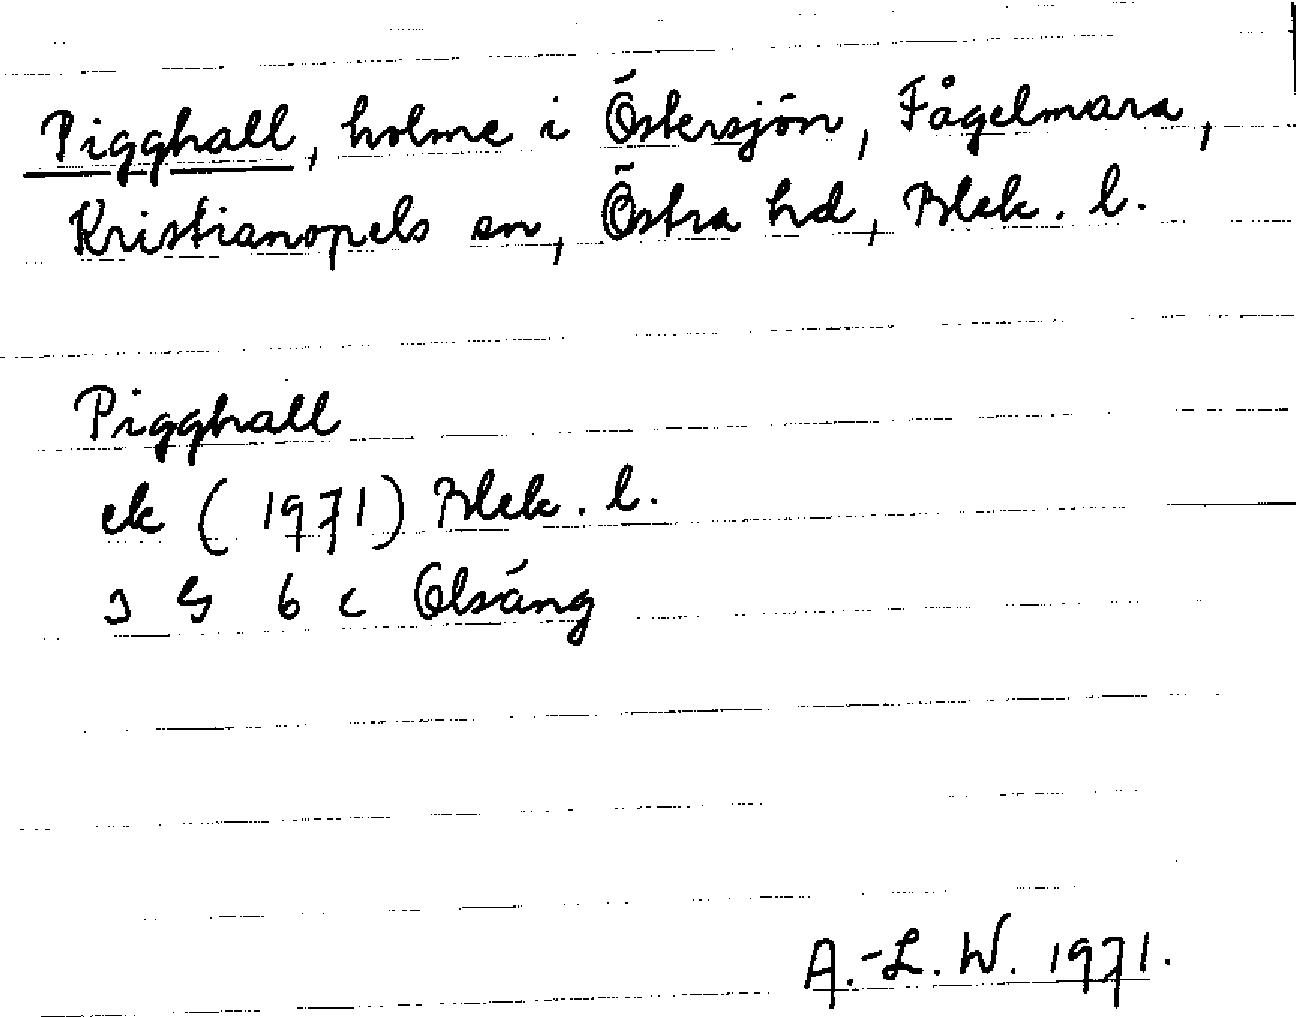 Pigghall, holme i Östersjön, Fågelmara,
Kristianopels sn, Östra hd, Blek. l.
Pigghall
ek (1971) Blek. l.
3 G 6 c Olsäng
A.-L. W. 1971.